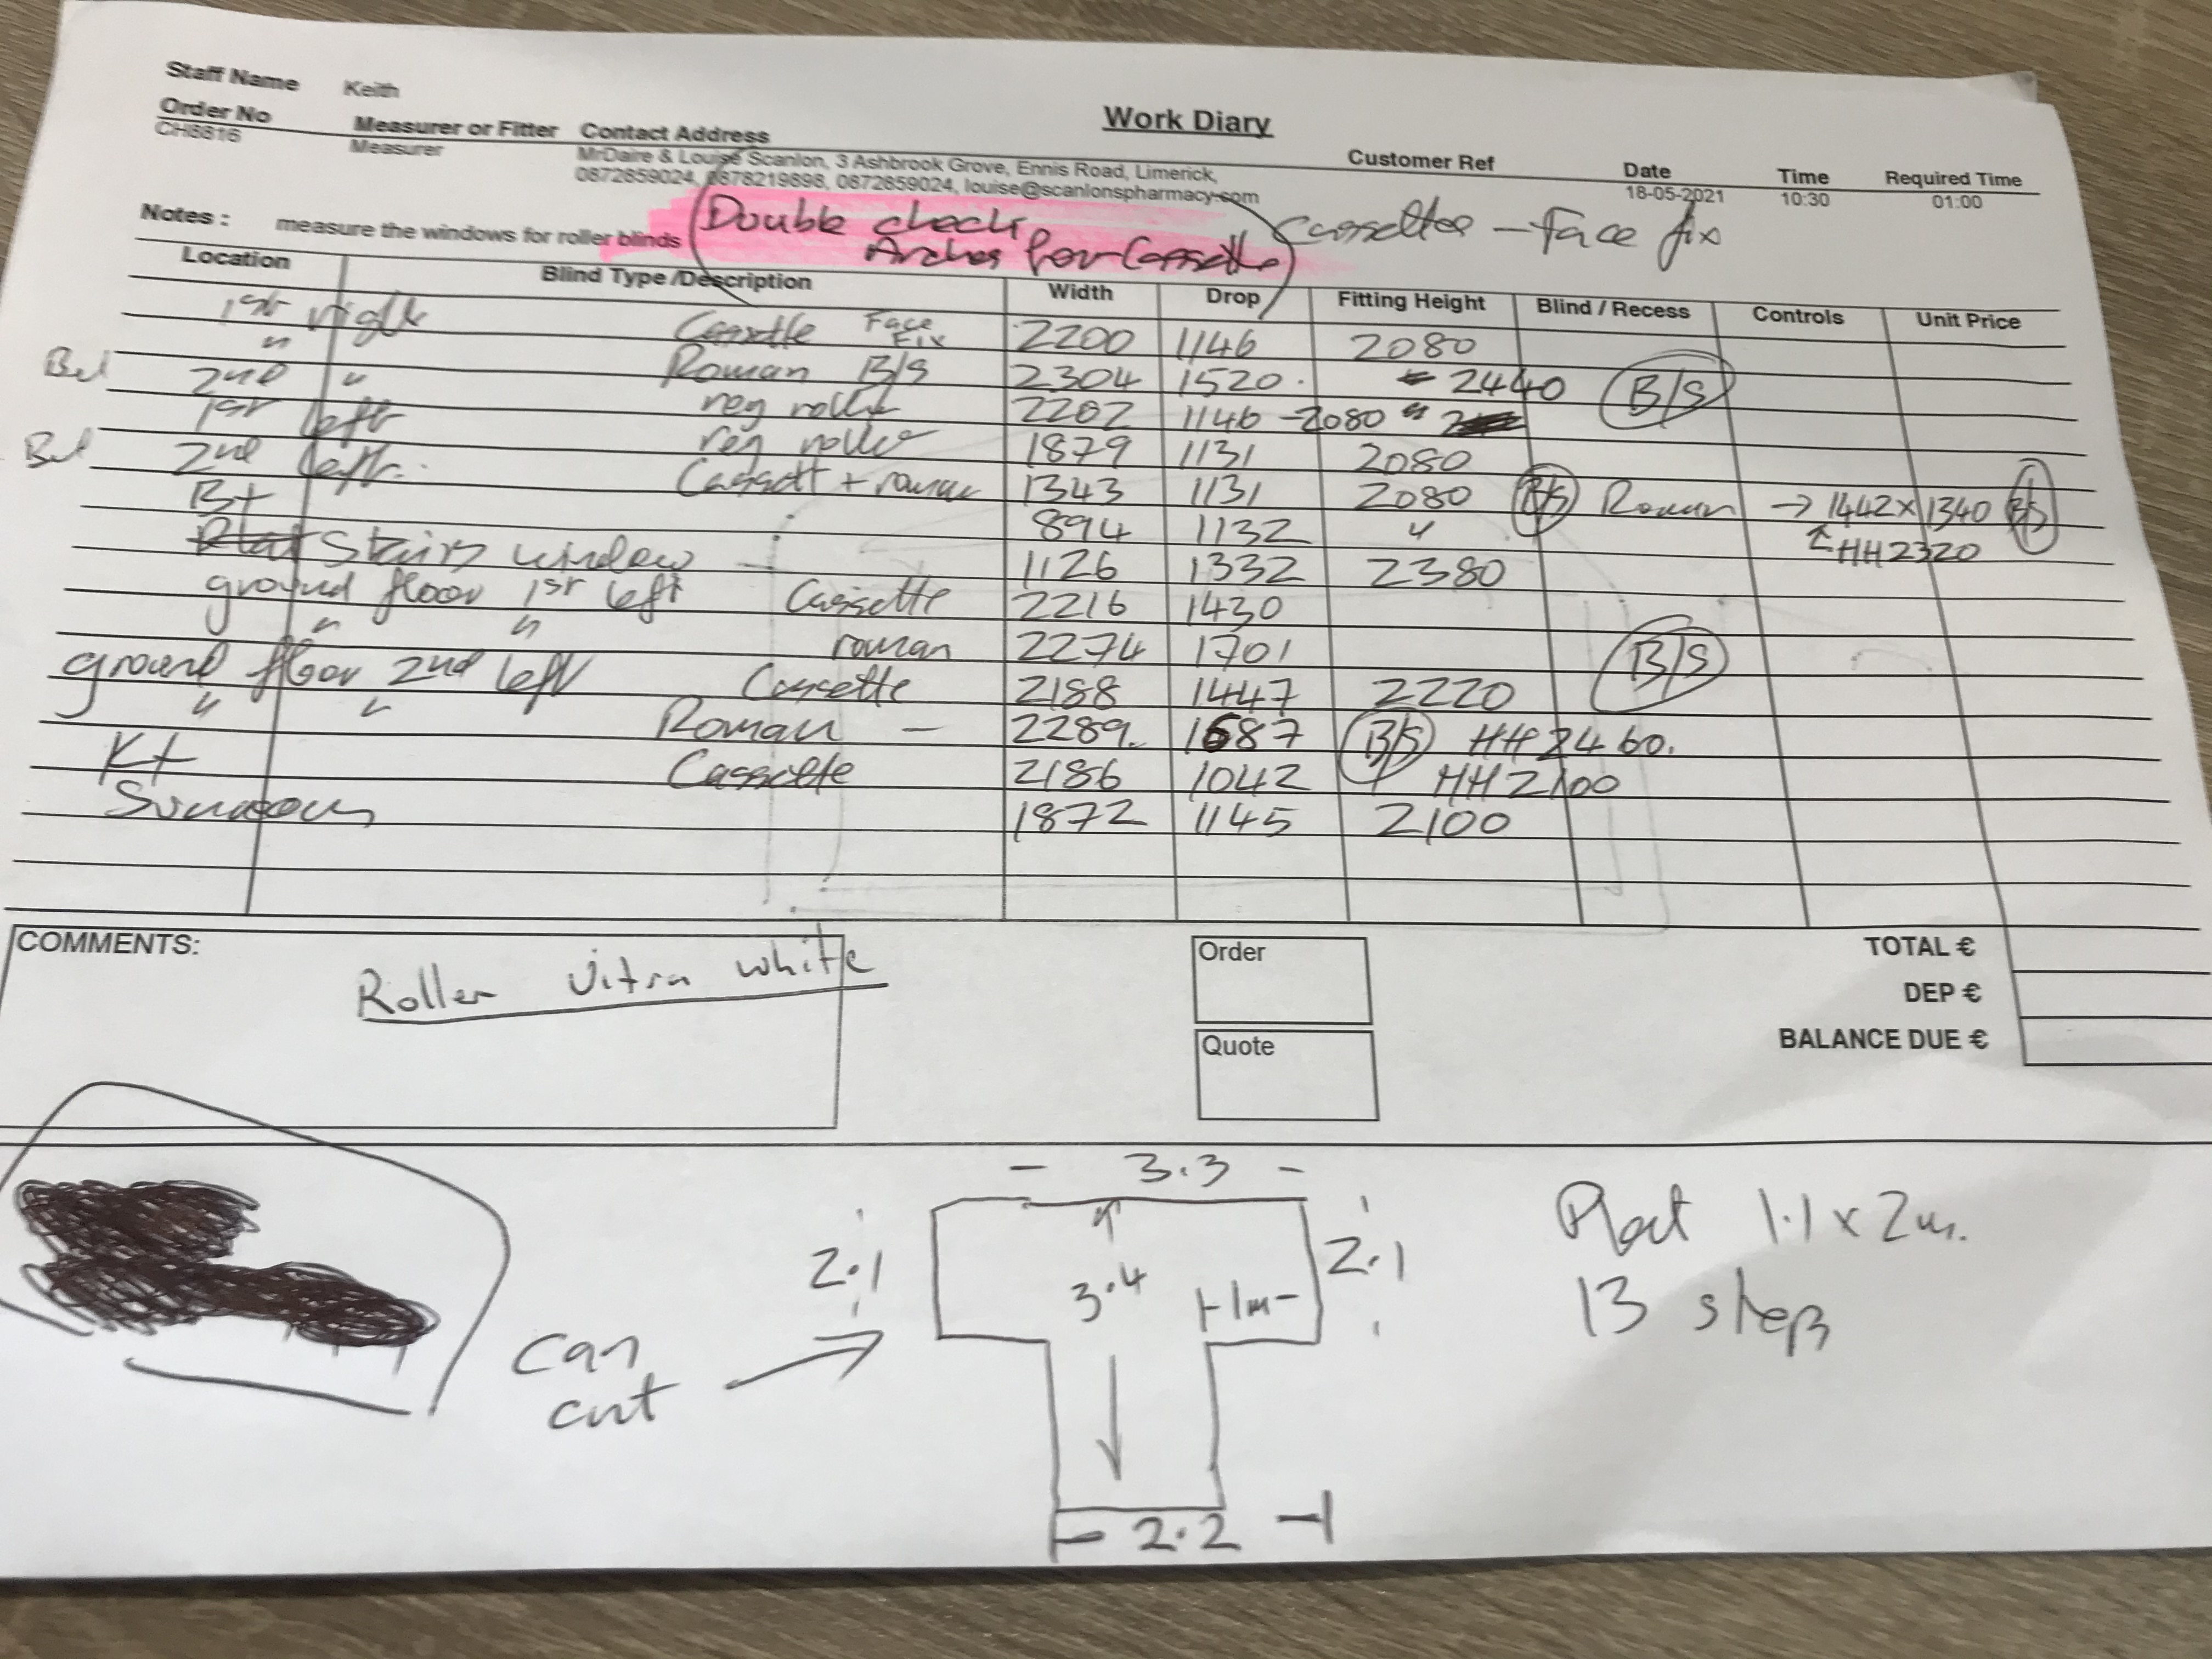 Work Diary
Staff Name Keith
Order No Measurer or Fitter Contact Address Customer Ref Date Time Required Time
CH8816 Measurer MrDaire & Louise Scanlon, 3 Ashbrook Grove, Ennis Road, Limerick, 18-05-2021 10:30 01:00
0872859024, 0878219898, 0872859024, louise@scanlonspharmacy.com
Notes : measure the windows for roller blinds
Double check
Arches for Cassette
Cassettes - Face fix
Location Blind Type /Description Width Drop Fitting Height Blind / Recess Controls Unit Price
1st right Cassette Face Fix 2200 1146 2080
" Roman B/S 2304 1520 2440 B/S
2nd " reg roller 2202 1146 - 2080 "
1st left reg roller 1879 1131 2080
2nd left Cassett + roman 1343 1131 2080 B/S Roman → 1442 x 1340 B/S
Bt 894 1132 " HH 2320
Stairs window 1126 1332 2380
ground floor 1st left Cassette 2216 1430
" " roman 2274 1701 B/S
ground floor 2nd left Cassette 2188 1447 2220
" " Roman - 2289 1687 B/S HH 2460.
Kt Cassette 2186 1042 HH 2100
Sunroom 1872 1145 2100
COMMENTS:
Roller Vitra white
Order
Quote
TOTAL €
DEP €
BALANCE DUE €
- 3.3 -
2.1
3.4
1m
2.1
can
cut
2.2
Plat 1.1 x 2m.
13 steps